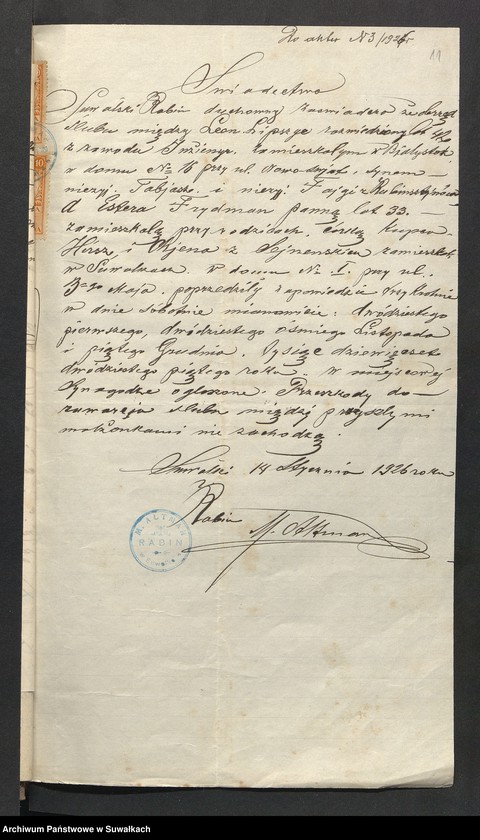 Do aktu N 3/1926r
11
Świadectwo
Suwalski Rabin duchowny zaświadcza że
ślubu między Leon Lipszyc rozwiedziony lat 42
z zawodu Inżenyr. zamieszkałym w Białystok
w domu № 16 przy ul. synem
nieżyj. Tobjasza i nieżyj. Fajgi z
A Estera Frydman panną lat 33.
zamieszkałą przy rodzicach. córką kupca
Hersz, i z Sejnenskich zamieszk.
w Suwałkach w domu № 1. przy ul.
3-go Maja. poprzedziły zapowiedzie trzykrotnie
w dnie sobotnie mianowicie: dwódziestego
pierwszego, dwódziestego ósmiego Listopada
i piątego Grudnia. tysiąc dziewięćset
dwódziestego piątego roku. w miejscowej
Synagodze ogłoszone. Przeszkody do
zawarcja ślubu między przyszłymi
małżonkami nie zachodzą.
Suwałki 14 Stycznia 1926 roku
Rabin M. Altman
M. ALTMAN
RABIN
Archiwum Państwowe w Suwałkach